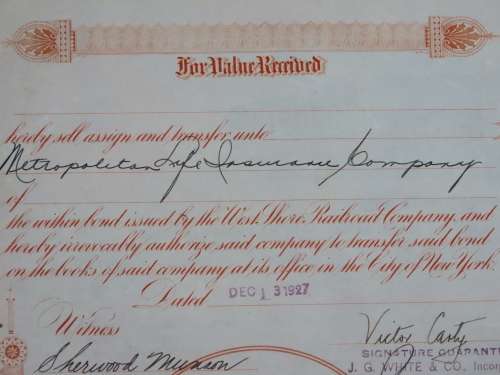 For Value Received
hereby sell assign and transfer unto
Metropolitan Life Insurance Company
of
the within bond issued by the West Shore Railroad Company, and
hereby irrevocably authorize said company to transfer said bond
on the books of said company at its office, in the City of New York.
Dated DEC 13 1927
Witness Victor Carty
SIGNATURE GUARANT
Sherwood Munson J. G. WHITE & CO., Incor